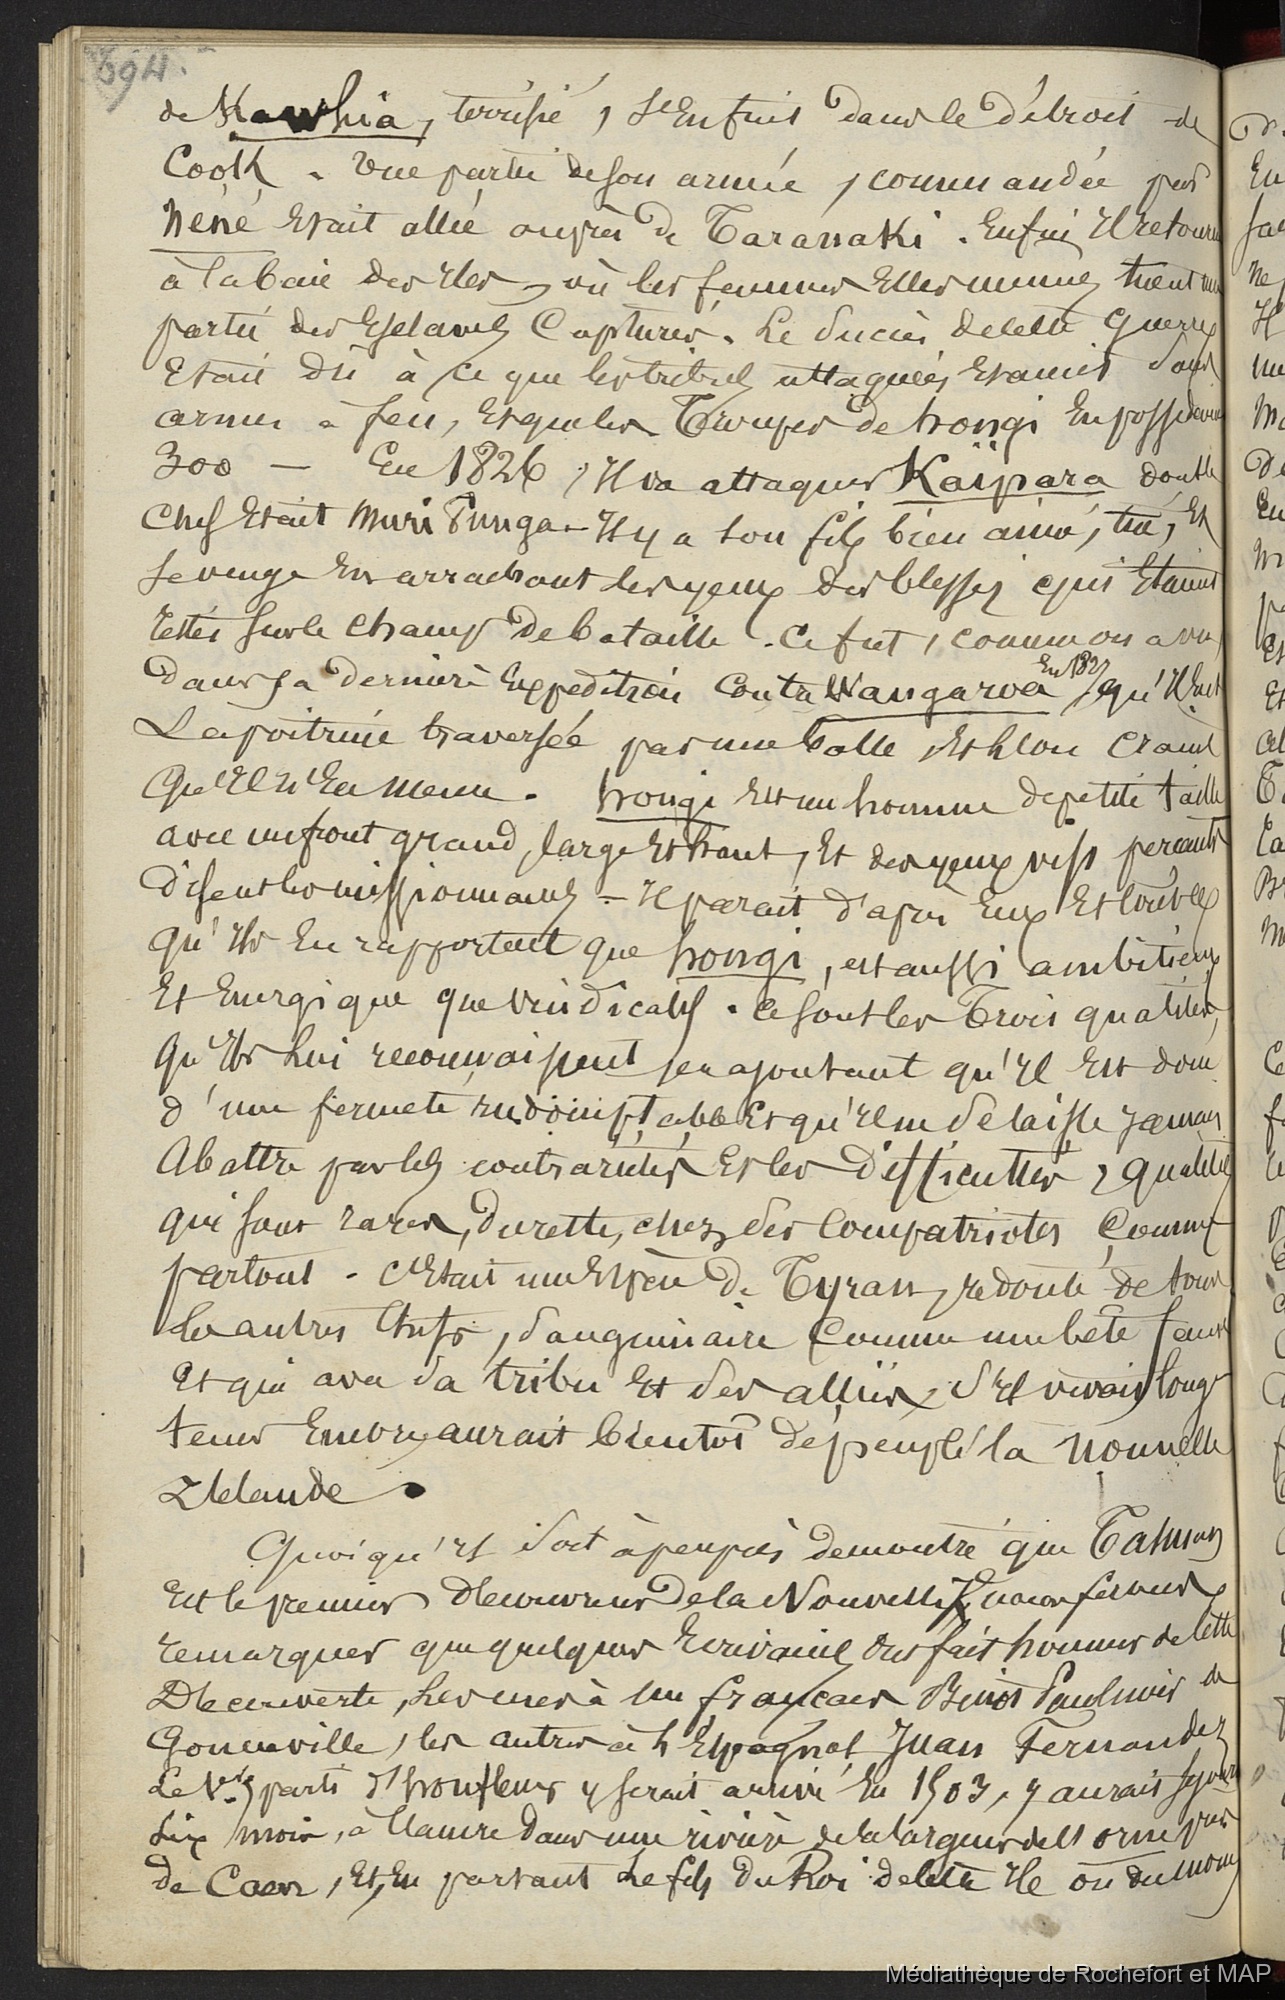 694.
de Kawhia, terrifié, s'Enfuit dans le détroit de
Cook. Une partie de son armée, commandée par
Néné Etait allée auprès de Taranaki. Enfin Il retourne
à la baie des Iles, où les femmes Elles mêmes tuent une
partie des Esclaves Capturés. Le Succès de cette Guerre
Etait dû à ce que les tribus attaquées Etaient Sans
armes à feu, Et que les Troupes de hongi En possédaient
300 — En 1826, Il va attaquer Kaïpara dont le
Chef Etait Muri Punga - Il y a son fils bien aimé, tué, Et
Se venge En arrachant les yeux des blessés qui Etaient
restés Sur le Champ de bataille. Ce fut, comme on a vu,
dans sa dernière Expedition Contre Wangaroa En 1827 qu'Il eut
La poitrine traversée par une balle, Et l'on Craint
Qu'Il n'En Meure. hongi Est un homme de petite taille
avec un front grand, large Et haut, Et des yeux vifs perçants
disent les missionnaires - Il parait d'après Eux Et
qu'Ils En rapportent que hongi, est aussi ambitieux
Et Energique que Vindicatif. Ce Sont les Trois qualités,
Qu'Ils Lui reconnaissent, en ajoutant qu'Il Est doué
d'une fermeté indomptable Et qu'Il ne Se laisse Jamais
Abattre par les contrariétés Et les difficultés, Qualités
qui Sont rares, du reste, chez Ses Compatriotes Comme
partout. C'Etait une Espèce de Tyran, redouté de tous
les autres Chefs, Sanguinaire Comme une bête fauve
Et qui avec Sa tribu Et Ses alliés, S'Il vivait long
tems Encore, aurait bientôt dépeuplé la Nouvelle
Zélande.
Quoiqu'Il Soit à peu près démontré que Tasman
Est le premier Découvreur de la Nouvelle Z, nous ferons
remarquer que quelques Ecrivains ont fait honneur de cette
Découverte, les unes à un français Binot Paulmier de
Gonneville, les autres à l'Espagnol Juan Fernandez
Le 1er, parti d'honfleur y Serait arrivé En 1503, y aurait Séjourné
Six mois, à l'ancre dans une rivière de la largeur de l'Orne près
de Caen, Et, En partant Le fils du Roi de cette Ile où du moins
Médiathèque de Rochefort et MAP